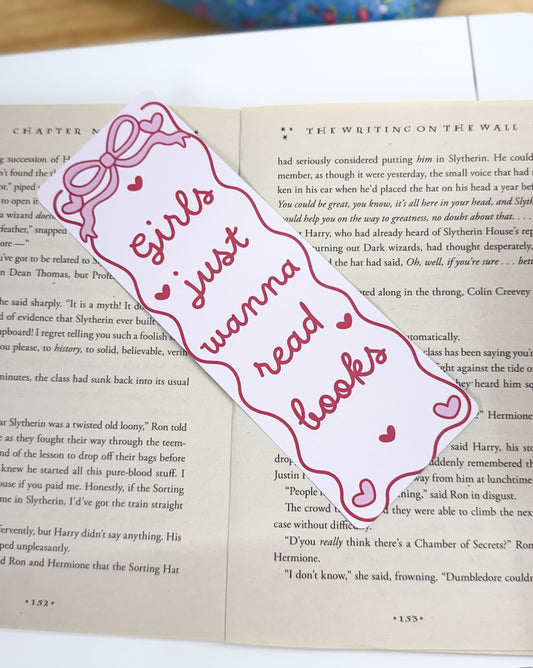 CHAPTER N
g succession of H
n't found the
to," piped
to open it
a wizard doesn
feather," snapped
ore —"
u've got to be related to S
n Dean Thomas, but Profe
he said sharply. "It is a myth! It do
d of evidence that Slytherin ever built
upboard! I regret telling you such a foolish s
ou please, to history, to solid, believable, verifi
minutes, the class had sunk back into its usual
ar Slytherin was a twisted old loony," Ron told
e as they fought their way through the teem-
nd of the lesson to drop off their bags before
knew he started all this pure-blood stuff. I
ouse if you paid me. Honestly, if the Sorting
me in Slytherin, I'd've got the train straight
fervently, but Harry didn't say anything. His
ped unpleasantly.
d Ron and Hermione that the Sorting Hat
*152*
Girls
just
wanna
read
books
THE WRITING ON THE WALL
had seriously considered putting him in Slytherin. He could
member, as though it were yesterday, the small voice that had s
ken in his ear when he'd placed the hat on his head a year bef
You could be great, you know, it's all here in your head, and Slyth
would help you on the way to greatness, no doubt about that. . . .
Harry, who had already heard of Slytherin House's rep
urning out Dark wizards, had thought desperately,
d the hat had said, Oh, well, if you're sure . . . bett
ted along in the throng, Colin Creevey
utomatically.
class has been saying you're
ght against the tide o
hey heard him sq
" Hermione
said Harry, his sto
drop ddenly remembered th
Justin F way from him at lunchtime
"People hing," said Ron in disgust.
The crowd t d they were able to climb the nex
case without difficu
"D'you really think there's a Chamber of Secrets?" Ron
Hermione.
"I don't know," she said, frowning. "Dumbledore couldn
*153*